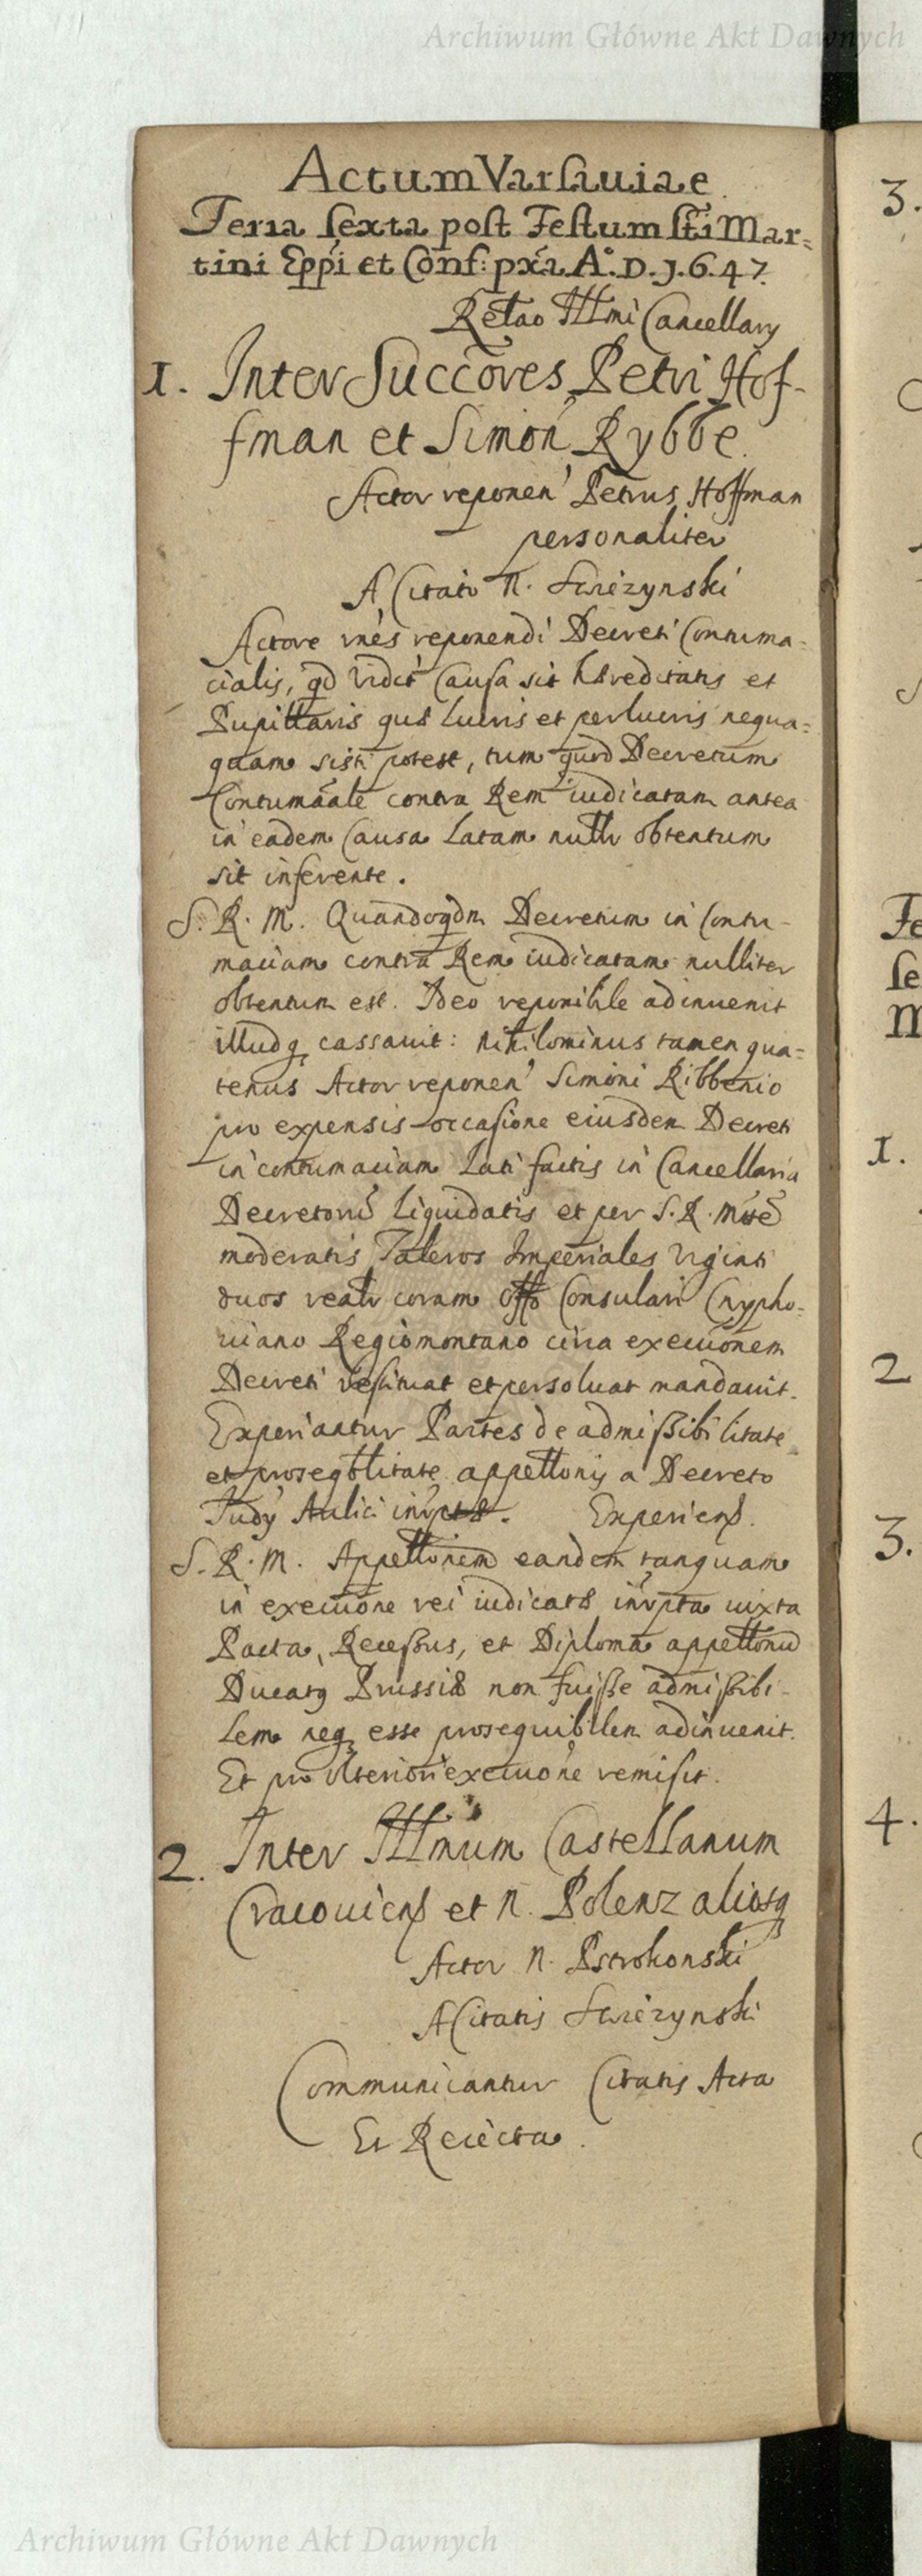 Archiwum Główne Akt Dawnych
Actum Varsauiae
Feria sexta post Festum Sti Mar=
tini Eppi et Conf: pxa A°. D. J. 6. 47.
Relao Illmi Cancellary
1. Inter Succores Petri Hof-
fman et Simon Rybbe.
Actor reponen Petrus Hoffman
personaliter
A Citato N. Swiezynski
Actore rnes reponendi Decreti Contuma=
cialis, qd vidct Causa sit hereditatis et
Pupillaris que lucris et perlucris nequa=
quam sisti potest, tum quod Decretum
Contumaale contra Rem iudicatam antea
in eadem Causa latam nullr obtentum
sit inferente.
S. R. M. Quandoqdm Decretum in Contu-
maciam contra Rem iudicatam nulliter
obtentum est. Ideo reponibile adinuenit
illudq cassauit: nihilominus tamen qua=
tenus Actor reponen Simoni Ribbenio
pro expensis occasione eiusdem Decreti
in contumaciam lati factis in Cancellaria
Decretoru liquidatis et per S. R. Mtte
moderatis Taleros Imperiales Viginti
duos realr coram Offo Consulari Cnypho-
uiano Regiomontano circa execuonem
Decreti restituat et persoluat mandauit.
Experiantur Partes de admissibilitate
et proseqblitate appellonis a Decreto
Judy Aulici inrpta. Experiens.
S. R. M. Appellonem eandem tanquam
in execuone rei iudicate inrpta iuxta
Pacta, Recessus, et Diploma appellonu
Ducatq Prussie non fuisse admissibi-
lem neq esse prosequibilem adinuenit.
Et pro vlteriori execuone remisit.
2. Inter Illmum Castellanum
Cracouiens et N. Polenz aliosq
Actor N. Pstrokonski
A Citatis Swiezynski
Communicantur Citatis Acta
Et Reiecta.
3.
1.
2
3.
4.
Archiwum Główne Akt Dawnych